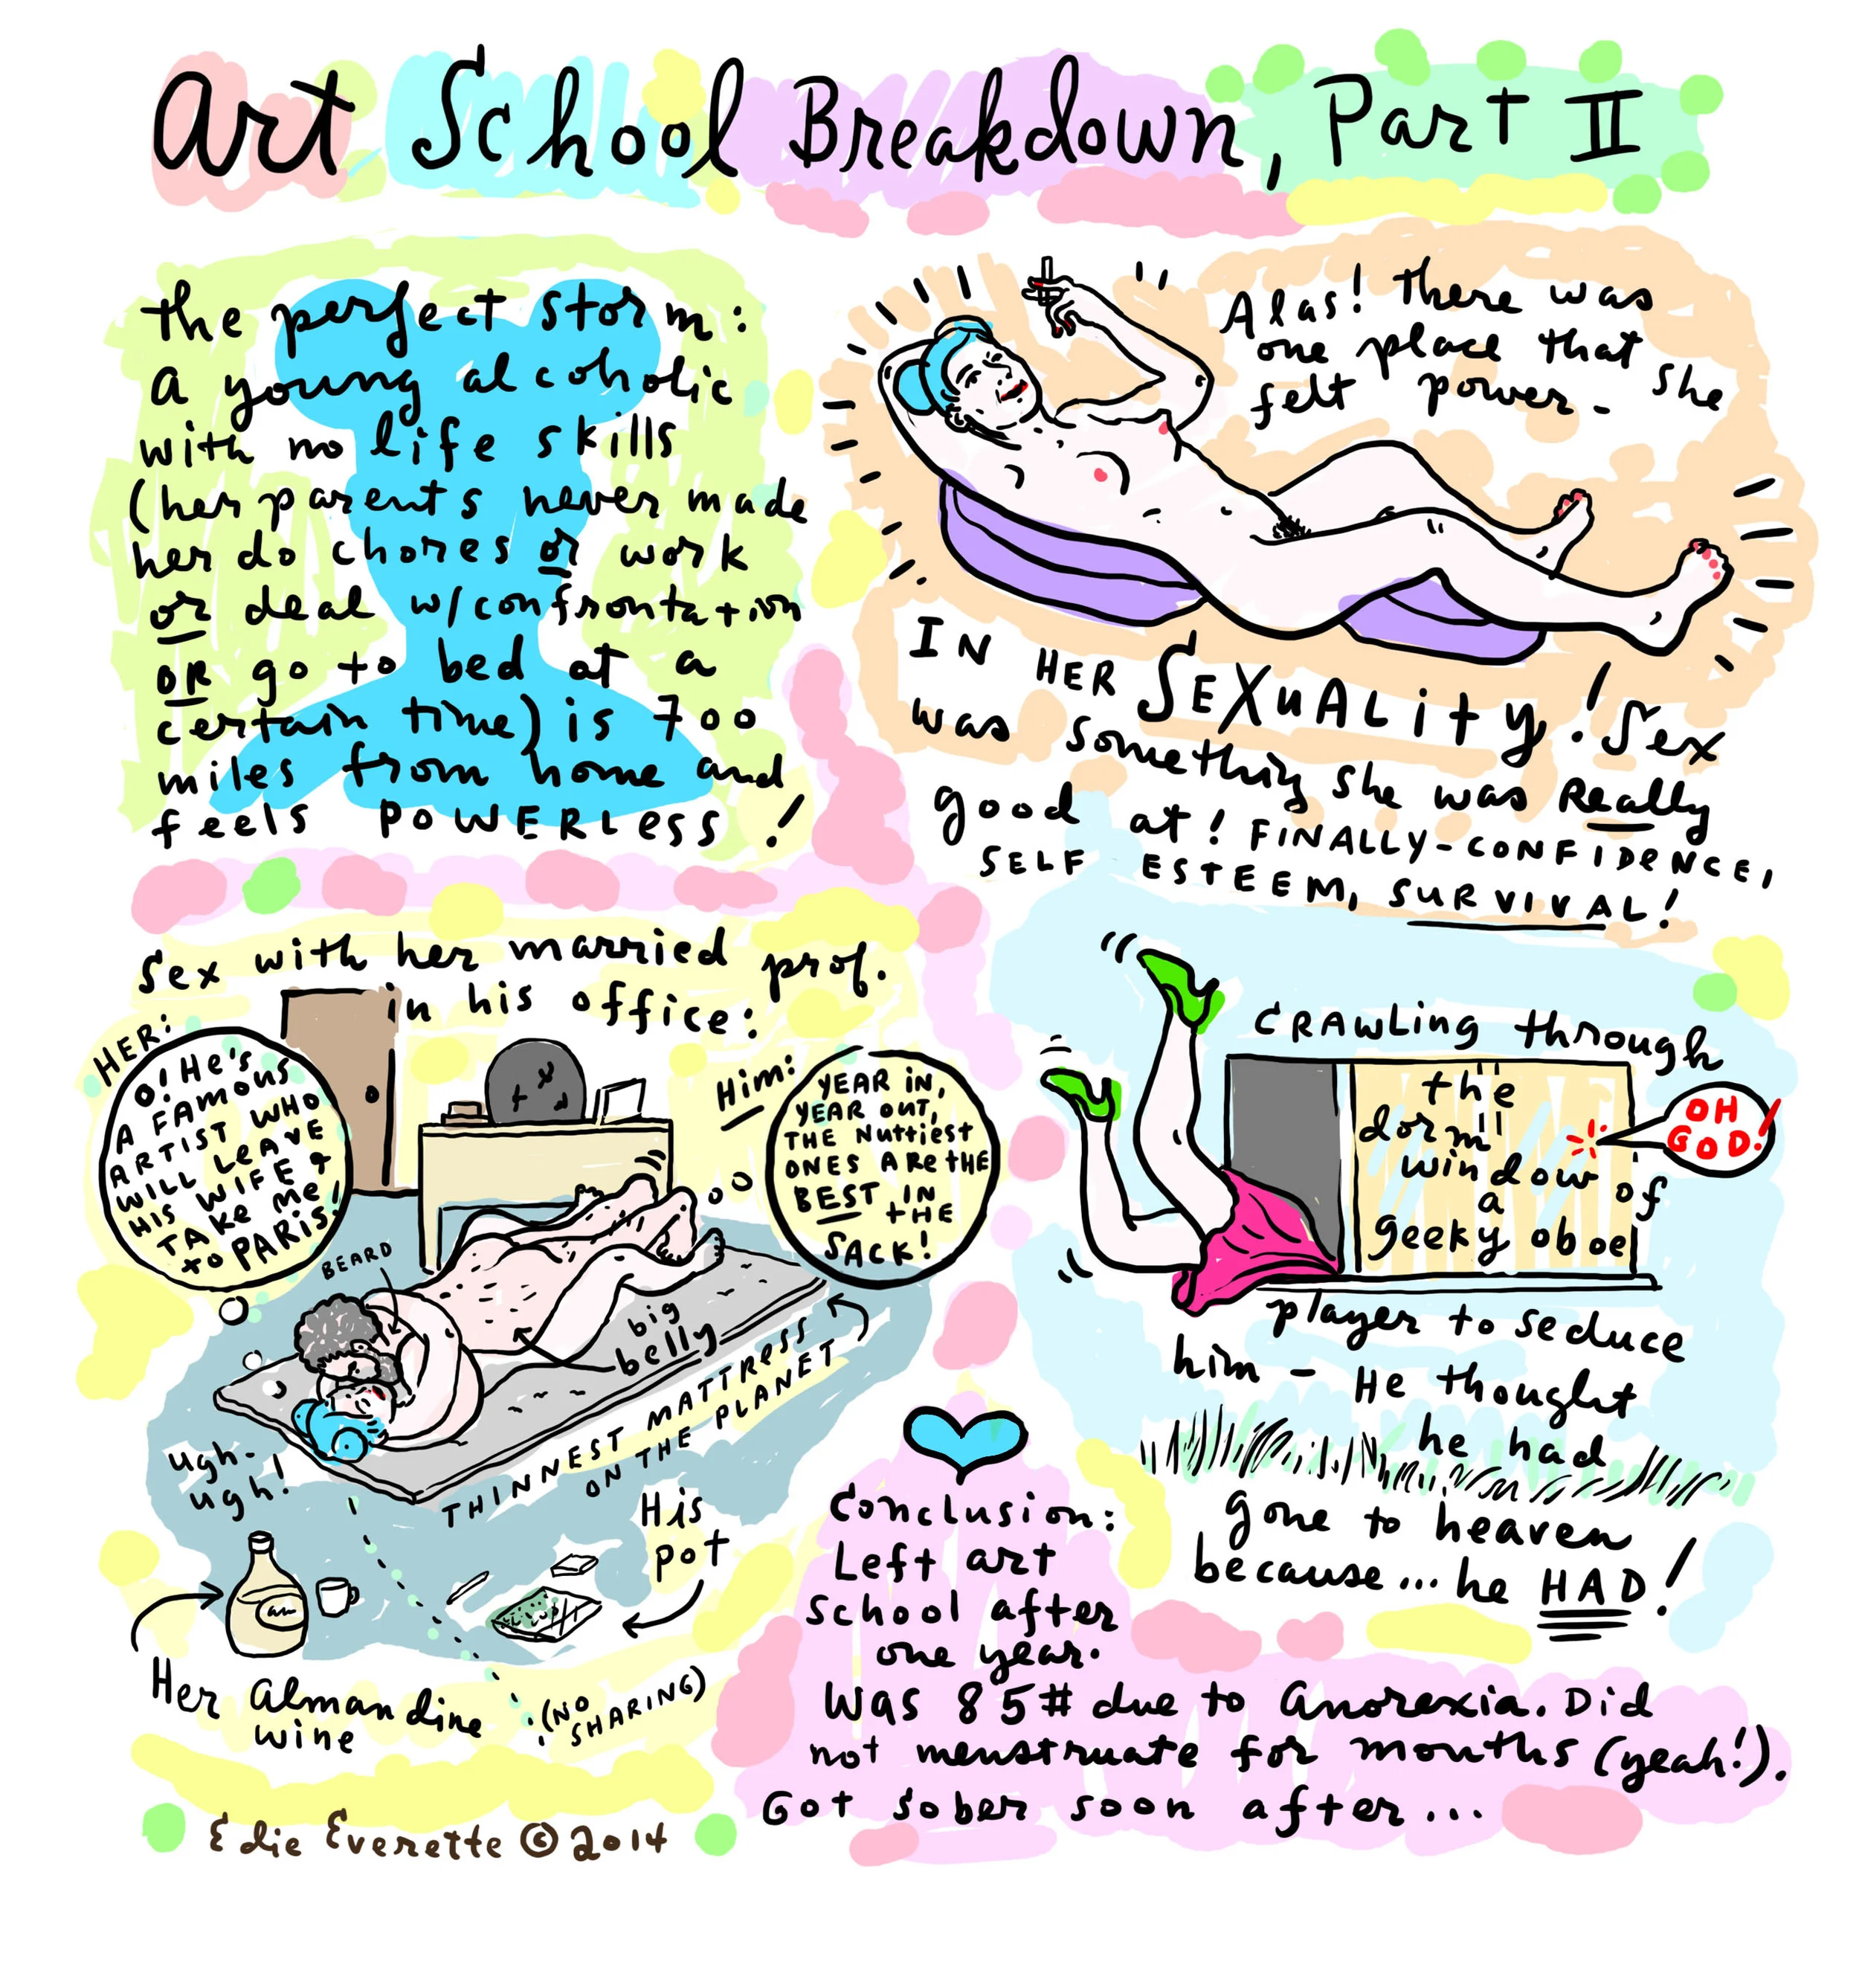 Art School Breakdown, Part II
the perfect storm:
a young alcoholic
with no life skills
(her parents never made
her do chores or work
or deal w/confrontation
OR go to bed at a
certain time) is 700
miles from home and
feels POWERLESS!
Alas! There was
one place that she
felt power-
IN HER SEXUALITY! Sex
was something she was Really
good at! FINALLY-CONFIDENCE,
SELF ESTEEM, SURVIVAL!
Sex with her married prof.
in his office:
HER:
O! He's
A FAMOUS
ARTIST WHO
WILL LEAVE
HIS WIFE &
TAKE me
to PARIS!
Him:
YEAR IN,
YEAR OUT,
THE NUttiest
ONES ARE tHE
BEST IN
tHE
SACK!
BEARD
big
belly
THINNEST MATTRESS
ON THE PLANET
ugh-
ugh!
His
pot
(NO
SHARING)
Her Almandine
wine
CRAWLing through
the
dorm
window of
a
geeky oboe
player to seduce
him - He thought
he had
gone to heaven
because... he HAD!
OH
GOD!
Conclusion:
Left art
school after
one year.
Was 85# due to Anorexia. Did
not menstruate for months (yeah!).
Got sober soon after...
Edie Everette © 2014